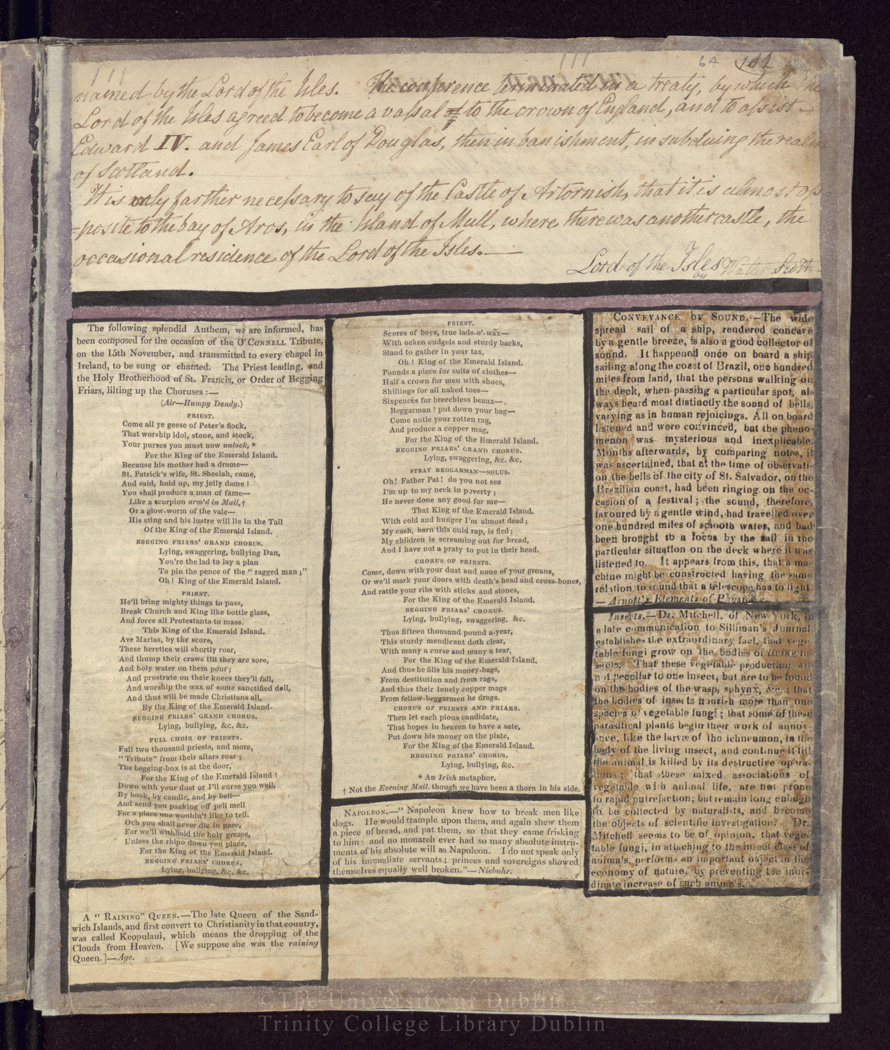 64
Lord of the Isles. The conference terminated in a treaty, by which
Lord of the Isles agreed to become a vassal to the crown of England, and to assist
Edward IV. and James Earl of Douglas, then in banishment, in subduing the realm
of Scotland.
It is only farther necessary to say of the Castle of Artornish, that it is almost op-
=posite to the bay of Aros, in the Island of Mull, where there was another castle, the
occasional residence of the Lord of the Isles.—
Lord of the Isles by Walter Scott
The following splendid Anthem, we are informed, has
been composed for the occasion of the O'CONNELL Tribute,
on the 15th November, and transmitted to every chapel in
Ireland, to be sung or chanted. The Priest leading, and
the Holy Brotherhood of St. Francis, or Order of Begging
Friars, lilting up the Choruses :—
(Air—Humpy Dandy.)
PRIEST.
Come all ye geese of Peter's flock,
That worship idol, stone, and stock,
Your purses you must now unlock, *
For the King of the Emerald Island.
Because his mother had a drame—
St. Patrick's wife, St. Sheelah, came,
And said, hould up, my jolly dame !
You shall produce a man of fame—
Like a scorpion arm'd in Mail,†
Or a glow-worm of the vale—
His sting and his lustre will lie in the Tail
Of the King of the Emerald Island.
BEGGING FRIARS' GRAND CHORUS.
Lying, swaggering, bullying Dan,
You're the lad to lay a plan
To pin the pence of the " ragged man ;"
Oh ! King of the Emerald Island.
PRIEST.
He'll bring mighty things to pass,
Break Church and King like bottle glass,
And force all Protestants to mass.
This King of the Emerald Island.
Ave Marias, by the score,
These heretics will shortly roar,
And thump their craws till they are sore,
And holy water on them pour;
And prostrate on their knees they'll fall,
And worship the wax of some sanctified doll,
And thus will be made Christians all,
By the King of the Emerald Island.
BEGGING FRIARS' GRAND CHORUS.
Lying, bullying, &c. &c.
FULL CHOIR OF PRIESTS.
Full two thousand priests, and more,
"Tribute" from their altars roar ;
The begging-box is at the door,
For the King of the Emerald Island !
Down with your dust or I'll curse you well,
By book, by candle, and by bell—
And send you packing off pell mell
For a place one wouldn't like to tell.
Och you shall never die in pace,
For we'll withhold the holy grease,
Unless the rhino down you place,
For the King of the Emerald Island.
BEGGING FRIARS' CHORUS.
Lying, bullying, &c. &c.
A " RAINING" QUEEN.—The late Queen of the Sand-
wich Islands, and first convert to Christianity in that country,
was called Keopulaui, which means the dropping of the
Clouds from Heaven. [We suppose she was the raining
Queen.]—Age.
PRIEST.
Scores of boys, true lads-o'-wax—
With oaken cudgels and sturdy backs,
Stand to gather in your tax,
Oh ! King of the Emerald Island.
Pounds a piece for suits of clothes—
Half a crown for men with shoes,
Shillings for all naked toes—
Sixpences for breechless beaux—
Beggarman ! put down your bag—
Come untie your rotten rag,
And produce a copper mag,
For the King of the Emerald Island.
BEGGING FRIARS' GRAND CHORUS.
Lying, swaggering, &c. &c.
STRAY BEGGARMAN—SOLUS.
Oh! Father Pat! do you not see
I'm up to my neck in poverty ;
He never done any good for me—
That King of the Emerald Island.
With cold and hunger I'm almost dead;
My cash, barn this ould rap, is fled;
My children is screaming out for bread,
And I have not a praty to put in their head.
CHORUS OF PRIESTS.
Come, down with your dust and none of your groans,
Or we'll mark your doors with death's head and cross-bones,
And rattle your ribs with sticks and stones,
For the King of the Emerald Island.
BEGGING FRIARS' CHORUS.
Lying, bullying, swaggering, &c.
Thus fifteen thousand pound a-year,
This sturdy mendicant doth clear,
With many a curse and many a tear,
For the King of the Emerald Island.
And thus he fills his money-bags,
From destitution and from rags,
And thus their lonely copper mags
From fellow-beggarmen he drags.
CHORUS OF PRIESTS AND FRIARS.
Then let each pious candidate,
That hopes in heaven to have a sate,
Put down his money on the plate,
For the King of the Emerald Island.
BEGGING FRIARS' CHORUS.
Lying, bullying, &c.
* An Irish metaphor.
† Not the Evening Mail. though we have been a thorn in his side.
NAPOLEON.—" Napoleon knew how to break men like
dogs. He would trample upon them, and again shew them
a piece of bread, and pat them, so that they came frisking
to him: and no monarch ever had so many absolute instru-
ments of his absolute will as Napoleon. I do not speak only
of his immediate servants; princes and sovereigns showed
themselves equally well broken."—Niebuhr.
CONVEYANCE OF SOUND.—The wide
spread sail of a ship, rendered concave
by a gentle breeze, is also a good collector of
sound. It happened once on board a ship
sailing along the coast of Brazil, one hundred
miles from land, that the persons walking on
the deck, when passing a particular spot, al-
ways heard most distinctly the sound of bells,
varying as in human rejoicings. All on board
listened and were convinced, but the pheno-
menon was mysterious and inexplicable.
Months afterwards, by comparing notes, it
was ascertained, that at the time of observati-
on the bells of the city of St. Salvador, on the
Brazilian coast, had been ringing on the oc-
casion of a festival; the sound, therefore,
favoured by a gentle wind, had travelled over
one hundred miles of smooth water, and had
been brought to a focus by the sail in the
particular situation on the deck where it was
listened to. It appears from this, that a ma-
chine might be constructed having the same
relation to sound that a telescope has to light.
—Arnott's Elements of Physics.
Insects.—Dr. Mitchell, of New York, in
a late communication to Silliman's Journal
establishes the extraordinary fact, that vege-
table fungi grow on the bodies of living in-
sects. That these vegetable production are
not peculiar to one insect, but are to be found
on the bodies of the wasp, sphynx, &c.; that
the bodies of insects nourish more than one
species of vegetable fungi; that some of these
parasitical plants begin their work of annoy-
ance, like the larvæ of the ichneumon, in the
body of the living insect, and continue it till
the animal is killed by its destructive opera-
tions; that these mixed associations of
vegetable with animal life, are not prone
to rapid putrefaction, but remain long enough
to be collected by naturalists, and become
the objects of scientific investigation. Dr.
Mitchell seems to be of opinion, that vege-
table fungi, in attaching to the insect class of
animals, performs an important object in the
economy of nature, by preventing the inor-
dinate increase of such animals.
© The University of Dublin
Trinity College Library Dublin